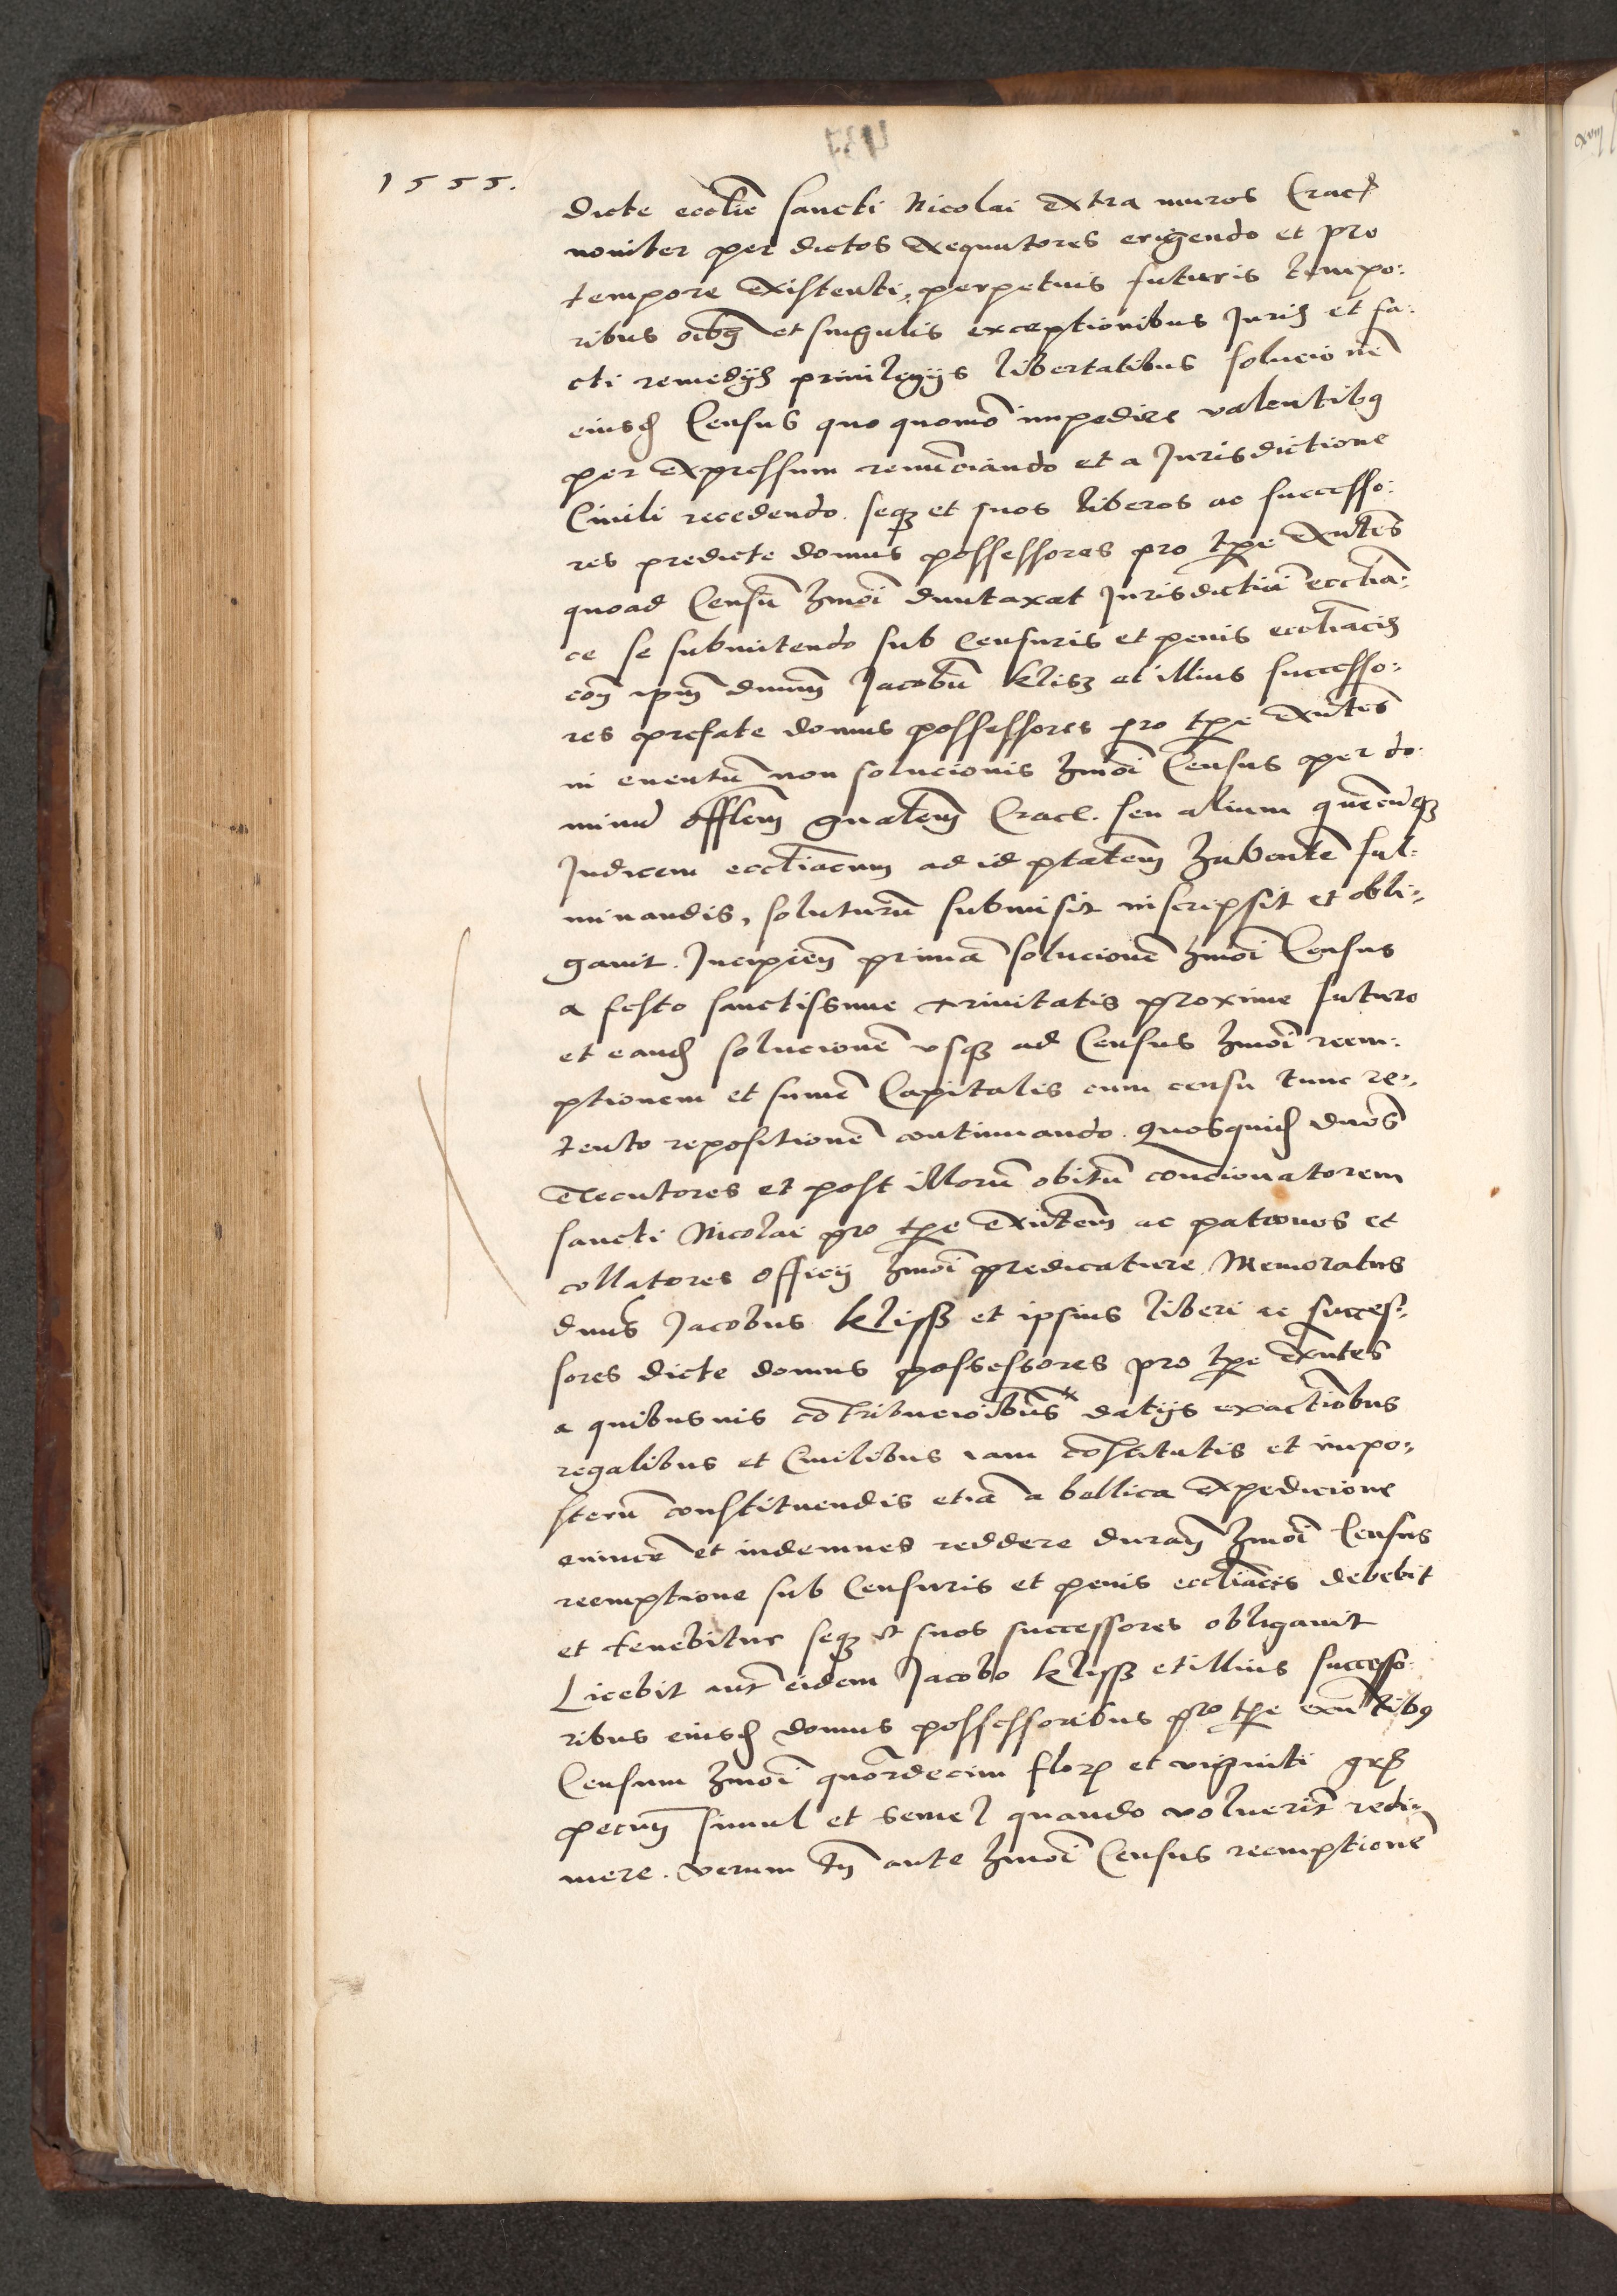 1555.
dicte ecclie sancti Nicolai extra muros Crac
noviter per dictos exequutores erigendo et pro
tempore existenti, perpetuis futuris tempo:
ribus oibus et singulis exceptionibus Juris et fa:
cti remedijs privilegijs libertatibus solucione
eiusd Census quo quomo impedire valentibus
per expressum renunciando et a Jurisdictione
Civili recedendo. seque et suos liberos ac successo:
res predicte domus possessores pro tpe exntes
quoad Censu hmoi duntaxat Jurisdictioi ecclia:
ce se submitendo sub Censuris et penis eccliacis
con ipm dnum Jacobu Klisz et illius successo:
res prefate domus possessores pro tpe exntes
in eventu non solucionis hmoi Census per do:
minu offlem gnalem Cracc. seu alium quecunque
Judicem eccliacum ad id ptatem habente ful:
minandis, soluturu submisit inscripsit et obli:
gavit. Incipien prima solucione hmoi Census
a festo sanctissime trinitatis proxime futuro
et eand solucione usque ad Census hmoi reem:
ptionem et sume Capitalis cum censu tunc re:
tento repositione continuando. Quosquid dnos
executores et post illoru obitu concionatorem
sancti Nicolai pro tpe exntem ac patronos et
collatores officij hmoi predicature Memoratus
dnus Jacobus Klissz et ipsius liberi ac succes:
sores dicte domus possessores pro tpe exntes
a quibusvis cotribucioibus datijs exactiobus
regalibus et Civilibus iam costitutis et impo:
steru constituendis etia a bellica expedicione
evince et indemnes reddere duran hmoi Census
reemptione sub Censuris et penis eccliacis debebit
et tenebitur seque et suos successores obligavit
Licebit aut eidem Jacobo Klissz et illius successo:
ribus eiusd domus possessoribus pro tpe exntibus
Censum hmoi quordecim flor et viginti gr
pecun simul et semel quando voluerit redi:
mere. verum tn ante hmoi Census reemptione